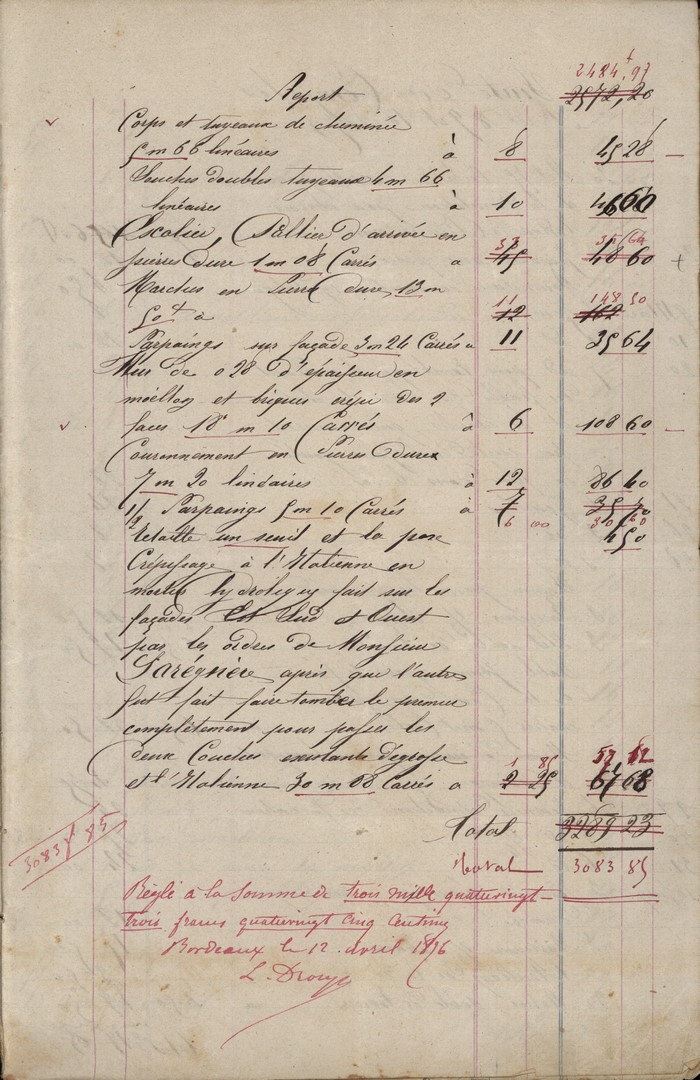 2484,97
Report 2572,20
Corps et tuyeaux de cheminée
5 m 66 linéaires à 8 45 28
Souches doubles tuyeaux 4 m 66
linéaires à 10 46 60
Escalier, Pallier d'arrivée en 33 35 64
pierres dure 1 m 08 Carrés à 45 48 60
Marches en Pierre dure, 13 m 11 148 50
50 à 12 162
Parpaings sur façade 3 m 24 Carrés à 11 35 64
Mur de 0 28 d'épaisseur en
moëllon et briques crépi des 2
faces 18 m 10 Carrés à 6 108 60
Couronnement en Pierres dures
7 m 20 linéaires à 12 86 40
1/2 Parpaings 5 m 10 Carrés à 7 35 70
6 00 30 60
Retaille un seuil et la pose 4 50
Crépissage à l'Italienne en
mortier hydrolique fait sur les
façades Est Sud et Ouest
par les ordres de Monsieur
Larégnère après que l'autre
fut fait faire tomber le premier
complètement pour passer les
deux Couches existante dégrossi 1 85
et l'Italienne 30 m 08 Carrés à 2 25 67 68
Total 3289 23
3083 85
Total 3083 85
Réglé à la somme de trois mille quatrevingt-
trois francs quatrevingt cinq centime
Bordeaux le 12 avril 1876
L. Drouyn